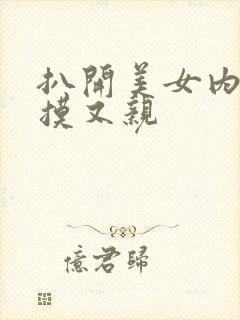 扒開美女内
摸又親
億君歸